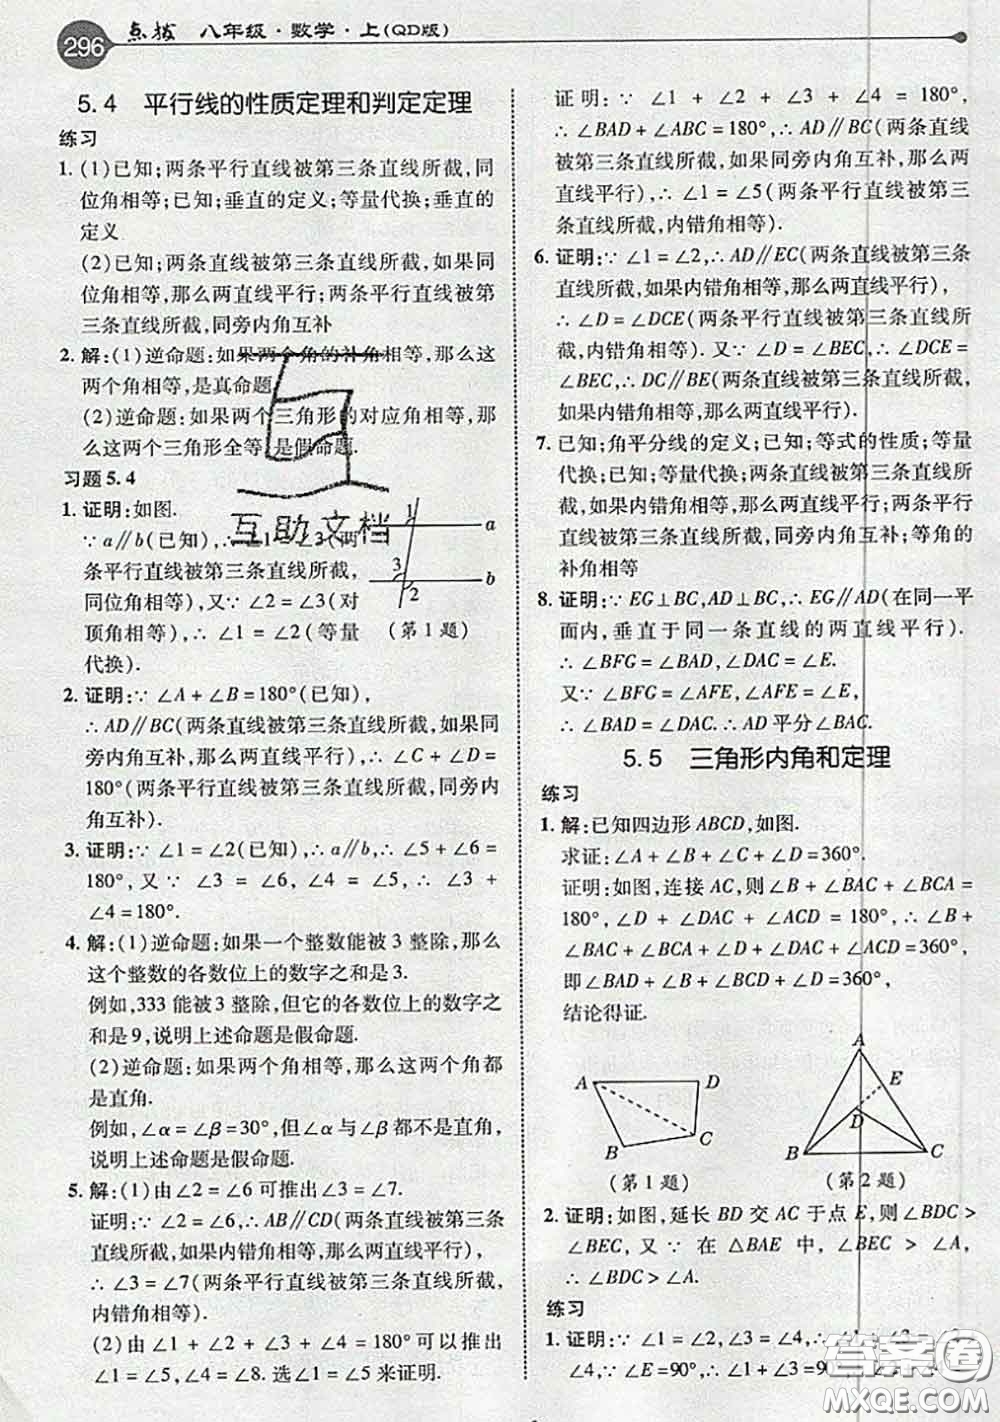 296 点拨 八年级·数学·上(QD版)
5.4 平行线的性质定理和判定定理
练习
1. (1)已知;两条平行直线被第三条直线所截,同
位角相等;已知;垂直的定义;等量代换;垂直的
定义
(2)已知;两条直线被第三条直线所截,如果同
位角相等,那么两直线平行;两条平行直线被第
三条直线所截,同旁内角互补
2. 解:(1)逆命题:如果两个角的补角相等,那么这
两个角相等,是真命题.
(2)逆命题:如果两个三角形的对应角相等,那
么这两个三角形全等,是假命题.
习题5.4
1. 证明:如图.
∵a∥b(已知),∴∠1=∠3(两
条平行直线被第三条直线所截,
同位角相等),又∵∠2=∠3(对
顶角相等),∴∠1=∠2(等量
代换).
a
b
3
2
(第1题)
互助文档
2. 证明:∵∠A+∠B=180°(已知),
∴AD∥BC(两条直线被第三条直线所截,如果同
旁内角互补,那么两直线平行).∴∠C+∠D=
180°(两条平行直线被第三条直线所截,同旁
内角互补).
3. 证明:∵∠1=∠2(已知),∴a∥b,∴∠5+∠6=
180°,又∵∠3=∠6,∠4=∠5,∴∠3+
∠4=180°.
4. 解:(1)逆命题:如果一个整数能被3整除,那么
这个整数的各数位上的数字之和是3.
例如,333能被3整除,但它的各数位上的数字之
和是9,说明上述命题是假命题.
(2)逆命题:如果两个角相等,那么这两个角都
是直角.
例如,∠α=∠β=30°,但∠α与∠β都不是直角,
说明上述命题是假命题.
5. 解:(1)由∠2=∠6可推出∠3=∠7.
证明:∵∠2=∠6,∴AB∥CD(两条直线被第三条
直线所截,如果内错角相等,那么两直线平行),
∴∠3=∠7(两条平行直线被第三条直线所截,
内错角相等).
(2)由∠1+∠2+∠3+∠4=180°可以推出
∠1=∠5,∠4=∠8.选∠1=∠5来证明.
证明:∵∠1+∠2+∠3+∠4=180°,
∴∠BAD+∠ABC=180°,∴AD∥BC(两条直线
被第三条直线所截,如果同旁内角互补,那么两
直线平行),∴∠1=∠5(两条平行直线被第三
条直线所截,内错角相等).
6. 证明:∵∠1=∠2,∴AD∥EC(两条直线被第三条
直线所截,如果内错角相等,那么两直线平行),
∴∠D=∠DCE(两条平行直线被第三条直线所
截,内错角相等).又∵∠D=∠BEC,∴∠DCE=
∠BEC,∴DC∥BE(两条直线被第三条直线所截,
如果内错角相等,那么两直线平行).
7. 已知;角平分线的定义;已知;等式的性质;等量
代换;已知;两条直线被第三条直线所截,如果
同旁内角互补,那么两直线平行;两条平行直线
被第三条直线所截,同旁内角互补;等角的
补角相等
8. 证明:∵EG⊥BC,AD⊥BC,∴EG∥AD(在同一平
面内,垂直于同一条直线的两直线平行).
∴∠BFG=∠BAD,∠DAC=∠E.
又∵∠BFG=∠AFE,∠AFE=∠E,
∴∠BAD=∠DAC.∴AD平分∠BAC.
5.5 三角形内角和定理
练习
1. 解:已知四边形ABCD,如图.
求证:∠A+∠B+∠C+∠D=360°.
证明:如图,连接AC,则∠B+∠BAC+∠BCA=
180°,∠D+∠DAC+∠ACD=180°,∴∠B+
∠BAC+∠BCA+∠D+∠DAC+∠ACD=360°,
即∠BAD+∠B+∠BCD+∠D=360°.
结论得证.
A
D
B
C
(第1题)
A
E
D
B
C
(第2题)
2. 证明:如图,延长BD交AC于点E,则∠BDC>
∠BEC,又∵在△BAE中,∠BEC>∠A,
∴∠BDC>∠A.
练习
1. 证明:∵∠1=∠2,∠3=∠4,∴∠1+∠3=∠2+
∠4,∵∠E=90°,∴∠1+∠3=90°,
答案圈
MXQE.COM